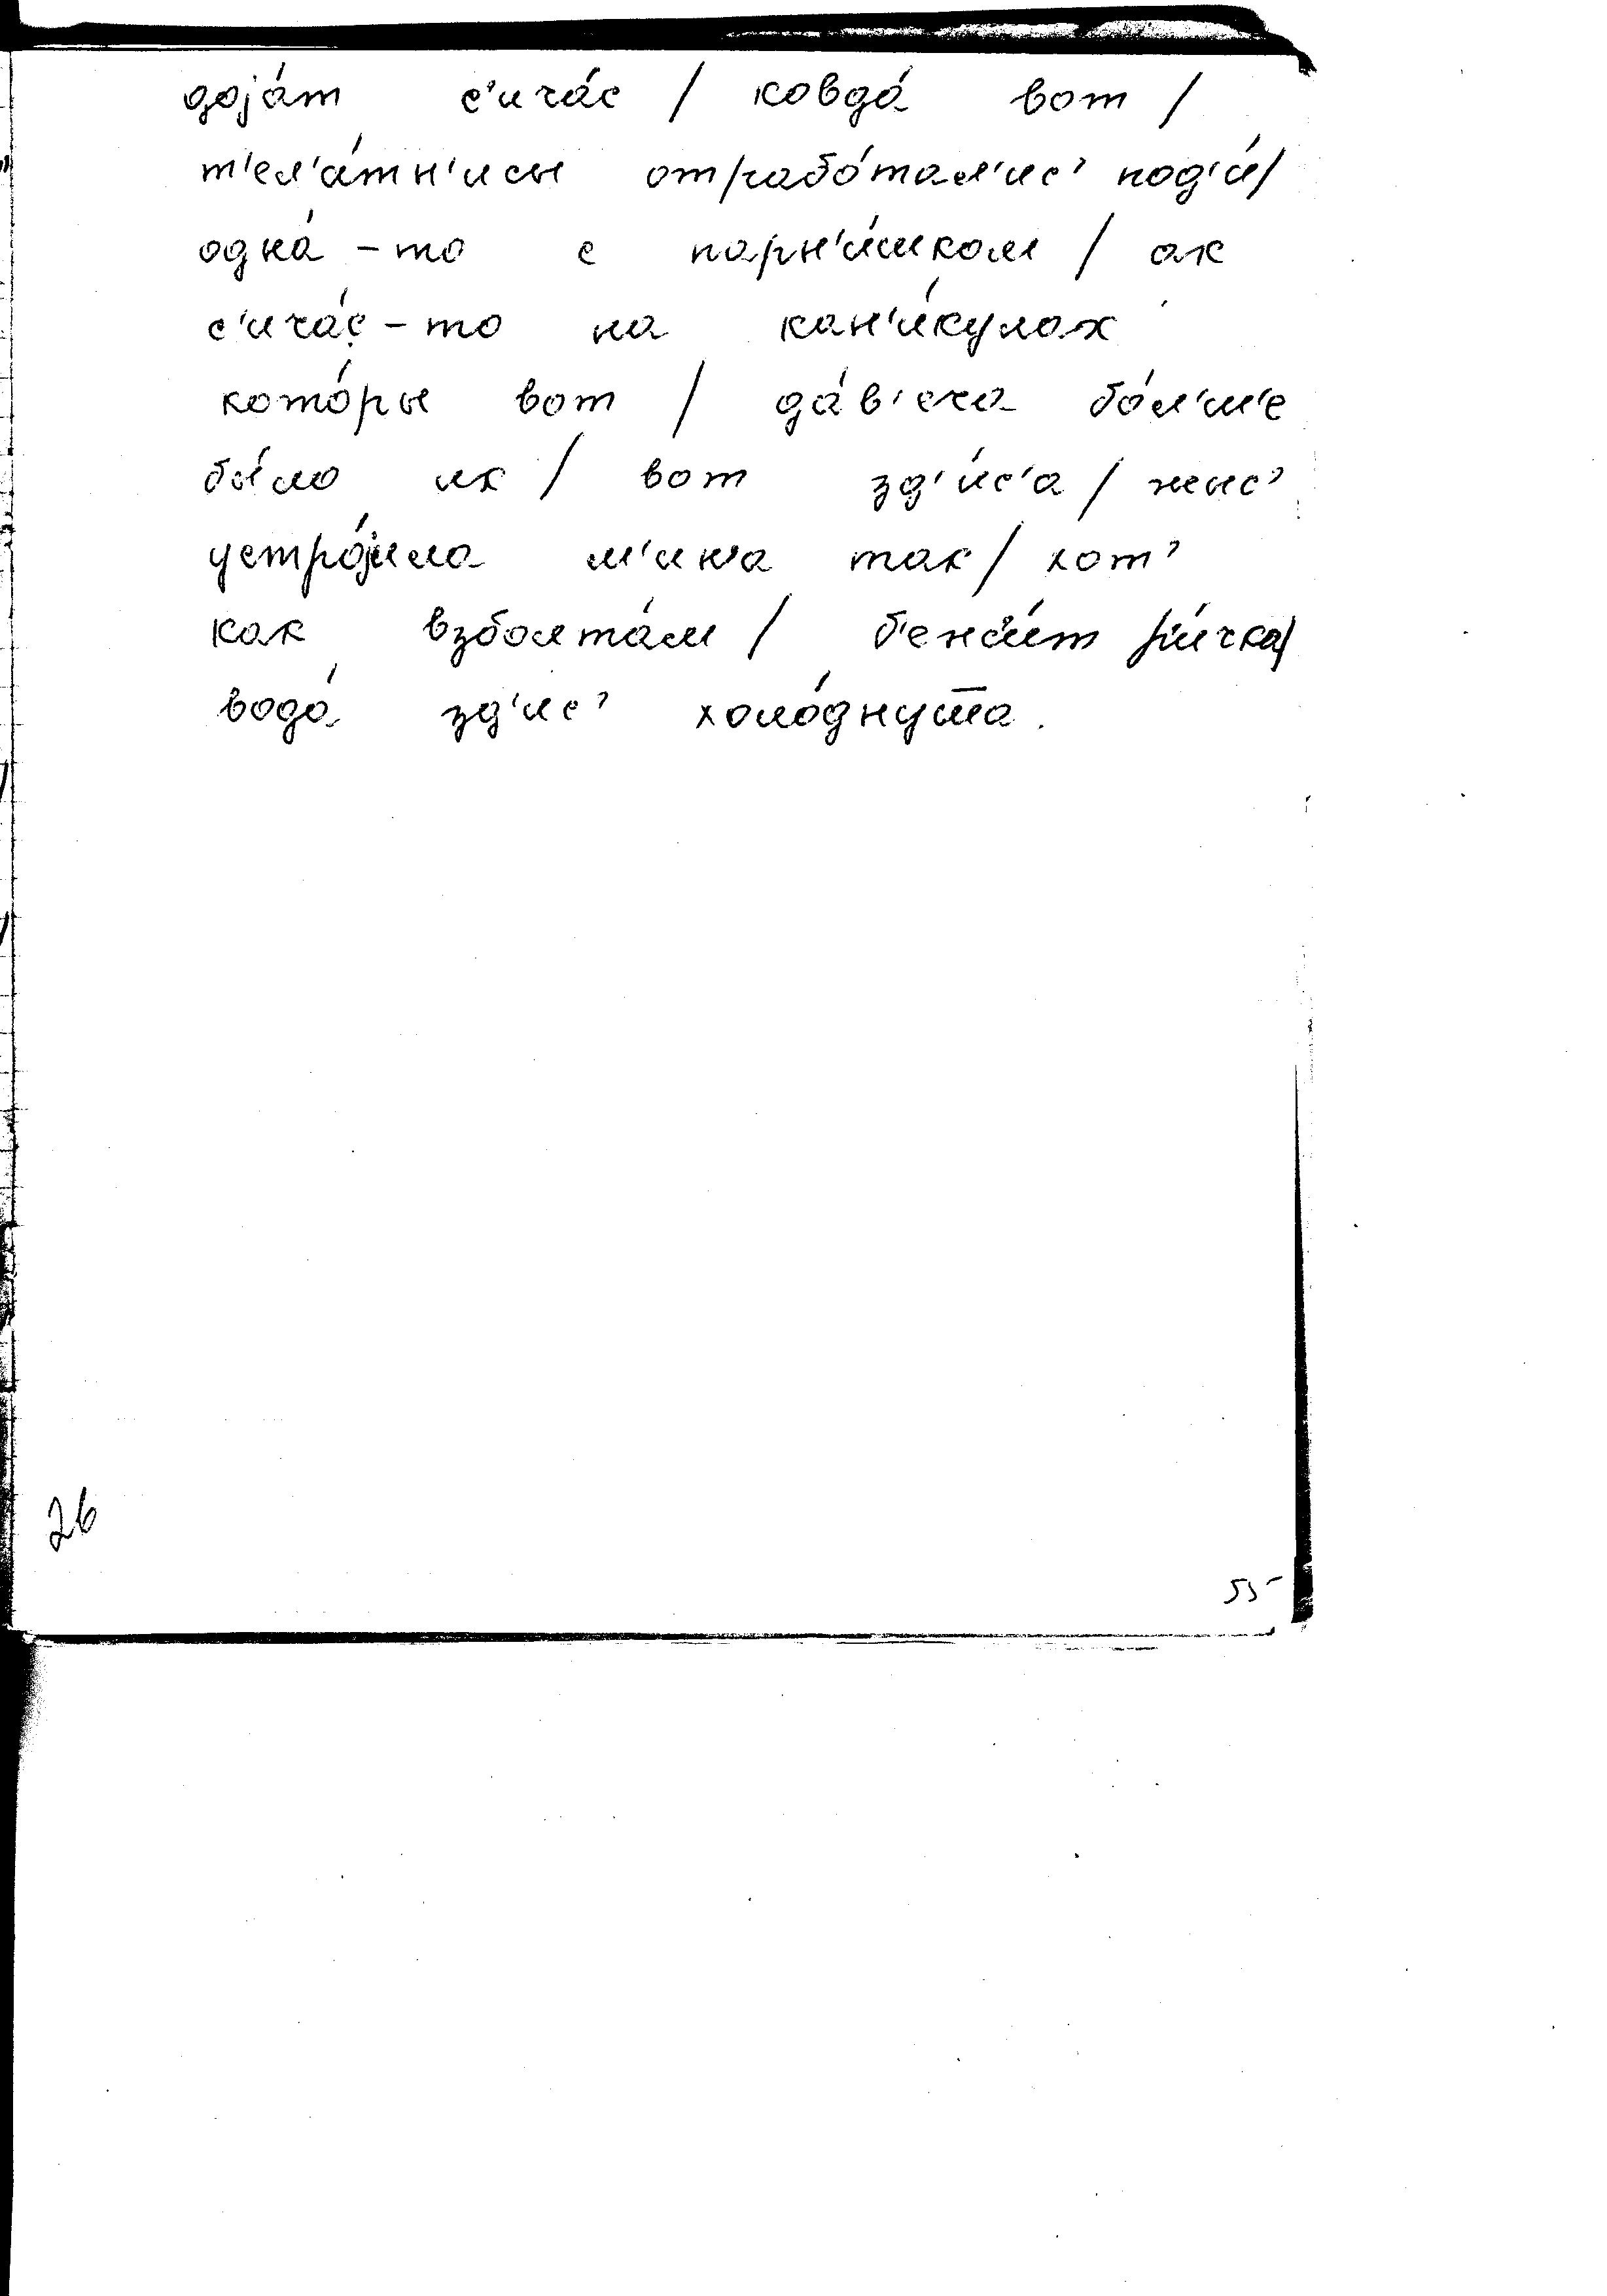 доја́т с'ича́с / ковда́ вот /
т'ел'а́тн'исы отрабо́тал'ис' под'и́/
одна́-то с парн'и́шком / ак
с'ича́с-то на кан'и́кулах
кото́ры вот / да́в'еча бо́л'ш'е
бы́ло их / вот зд'и́с'а /
устро́јила м'ин'а так / хот'
как взболта́м / б'ежи́т р'и́чка/
вода́ зд'ис' холо́дну
26
55